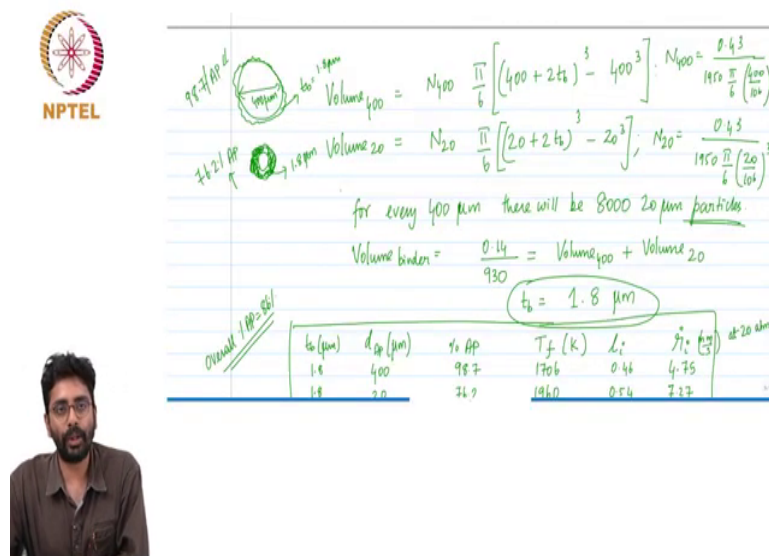 NPTEL
98.7% AP
400μm
t_b = 1.8μm
Volume_400 = N_400 π/6 [(400 + 2t_b)^3 - 400^3] ; N_400 = 0.43 / 1950 π/6 (400/10^6)^3
76.2% AP
1.8 μm
Volume_20 = N_20 π/6 [(20 + 2t_b)^3 - 20^3] ; N_20 = 0.43 / 1950 π/6 (20/10^6)^3
for every 400 μm there will be 8000 20 μm particles
Volume binder = 0.14 / 930 = Volume_400 + Volume_20
t_b = 1.8 μm
overall % AP = 86%
t_b (μm) d_AP (μm) % AP T_f (K) l_i ṙ_i (mm/s) at 20 atm
1.8 400 98.7 1706 0.46 4.75
1.8 20 76.2 1960 0.54 7.27